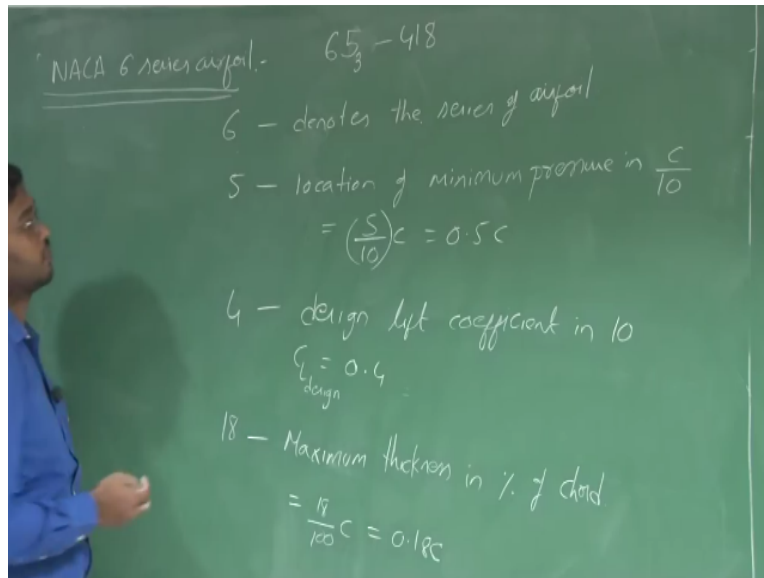 NACA 6 series airfoil.- 65₃-418
6 - denotes the series of airfoil
5 - location of minimum pressure in c/10
= (5/10)c = 0.5c
4 - design lift coefficient in 10
C_l design = 0.4
18 - Maximum thickness in % of chord
= 18/100 c = 0.18c